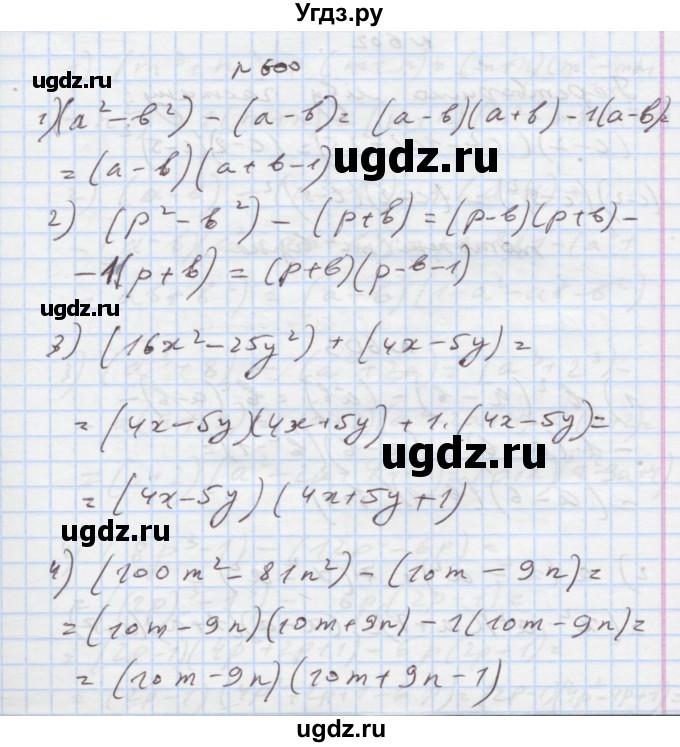 Угдз.ру
ugdz.ru
№ 600
1) (a² - b²) - (a - b) = (a - b)(a + b) - 1(a - b) =
= (a - b)(a + b - 1)
ugdz.ru
2) (p² - b²) - (p + b) = (p - b)(p + b) -
- 1(p + b) = (p + b)(p - b - 1)
ugdz.ru
3) (16x² - 25y²) + (4x - 5y) =
= (4x - 5y)(4x + 5y) + 1·(4x - 5y) =
ugdz.ru
= (4x - 5y)(4x + 5y + 1)
ugdz.ru
4) (100m² - 81n²) - (10m - 9n) =
= (10m - 9n)(10m + 9n) - 1(10m - 9n) =
= (10m - 9n)(10m + 9n - 1)
ugdz.ru